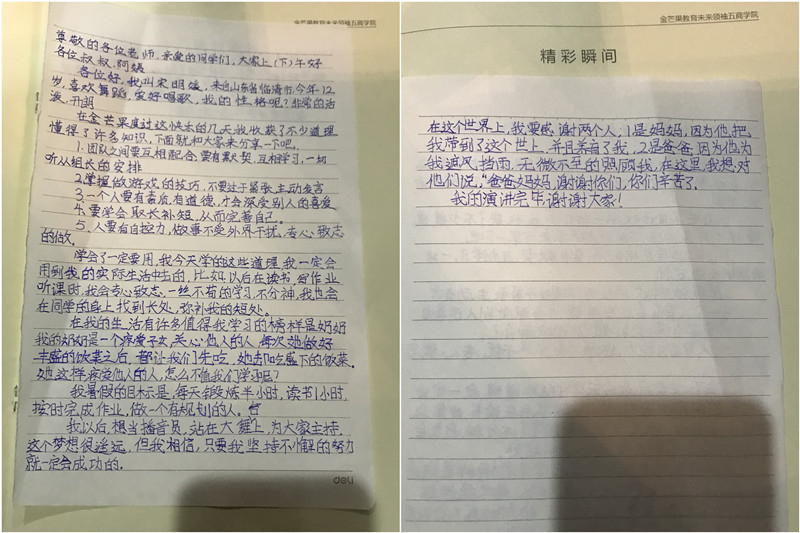 尊敬的各位老师、亲爱的同学们，大家上(下)午好
各位叔叔、阿姨
各位好，我叫宋明媛，来自山东省临清市，今年12
岁，喜欢舞蹈，爱好唱歌，我的性格呢？非常的活
泼、开朗
在金芒果度过这快乐的几天我收获了不少道理
懂得了许多知识，下面就和大家来分享一下吧。
1.团队之间要互相配合，要有默契，互相学习，一切
听从组长的安排
2.掌握做游戏的技巧，不要过于紧张，主动发言
3.一个人要有素质，有道德，才会深受别人的喜爱
4.要学会取长补短，从而完善自己。
5.人要有自控力，做事不受外界干扰，专心致志
的做。
学会了一定要用，我今天学的这些道理，我一定会
用到我的实际生活中去的，比如以后在读书，写作业
听课时，我会专心致志，一丝不苟的学习，不分神，我也会
在同学的身上找到长处，弥补我的短处。
在我的生活有许多值得我学习的榜样是奶奶
我的奶奶是一个疼爱子女，关心他人的人，每次她做好
丰盛的饭菜之后，都让我们先吃，她去吃盛下的饭菜。
她这样疼爱他人的人，怎么不值我们学习呢？
我暑假的目标是，每天锻炼半小时，读书1小时，
按时完成作业，做一个有规划的人。
我以后，想当播音员，站在大舞上，为大家主持。
这个梦想很遥远，但我相信，只要我坚持不懈的努力
就一定会成功的。
deli
金芒果教育未来领袖五商学院
金芒果教育未来领袖五商学院
精彩瞬间
在这个世界上，我要感谢两个人，1是妈妈，因为他把
我带到了这个世上，并且养育了我，2是爸爸，因为他为
我遮风挡雨，无微不至的照顾我，在这里，我想对
他们说，“爸爸妈妈，谢谢你们，你们辛苦了。
我的演讲完毕谢谢大家！